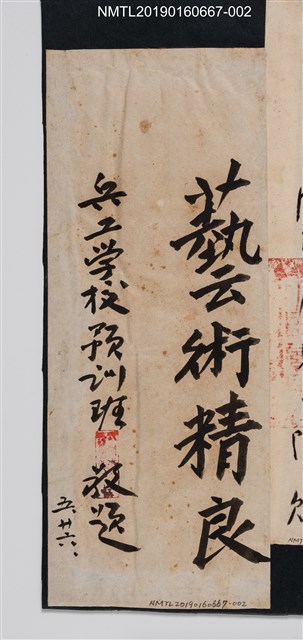 NMTL20190160667-002
藝術精良
兵工学校預訓班 敬題
五.廿六.
NMTL20190160667-002